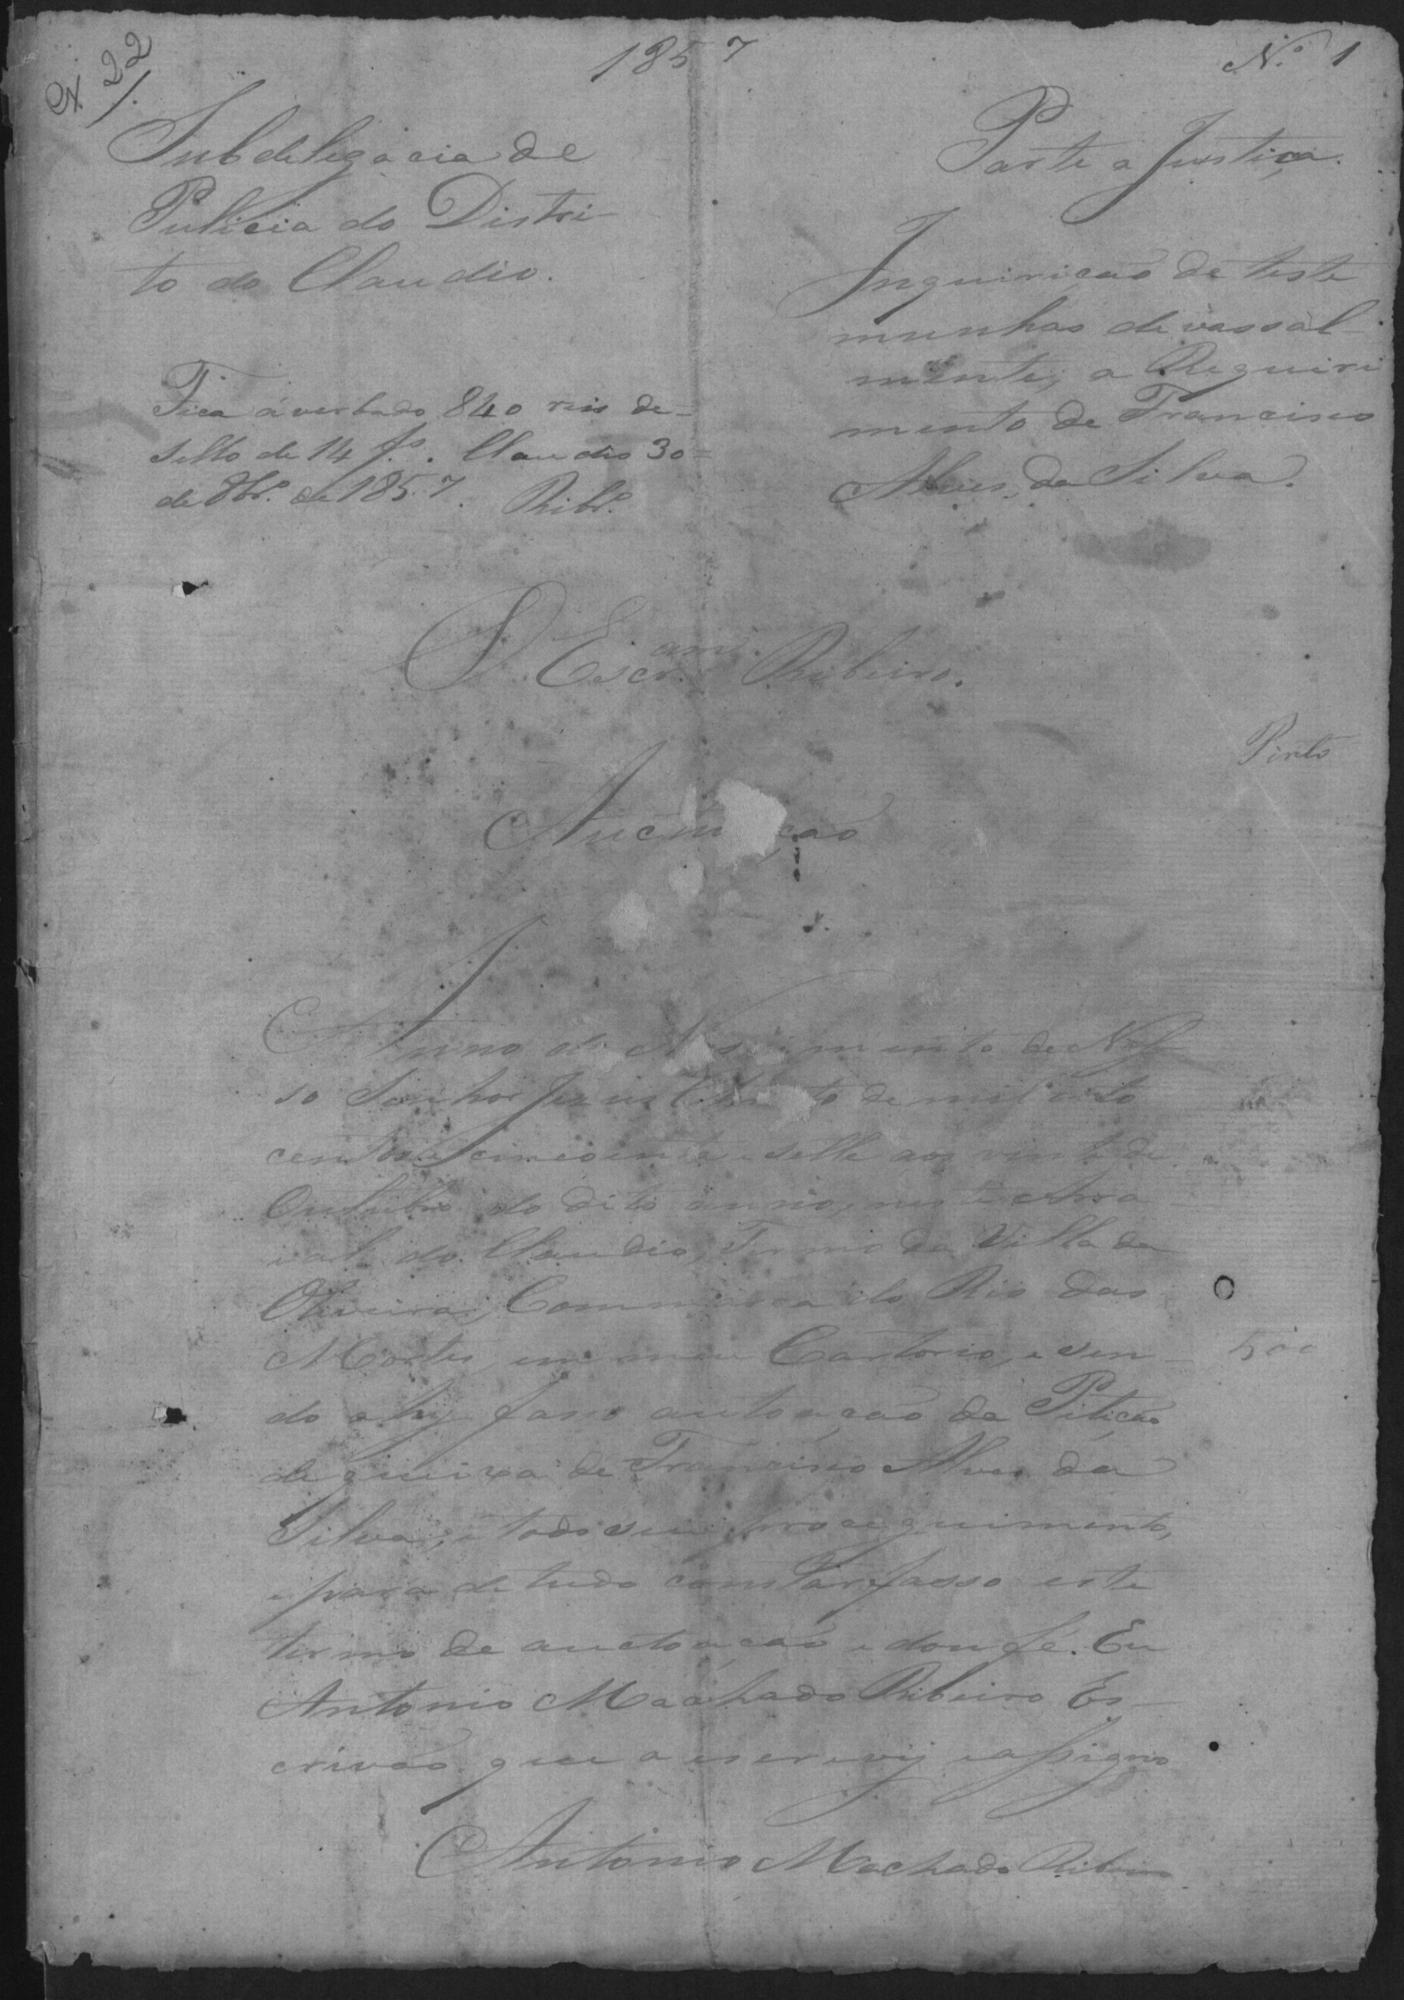 N. 22
1.
1857
N.º 1
Subdelegacia de
Pulicia do Distri-
to do Claudio.
Parte a Justiça.
Inquirição de teste
munhas devassal-
mente, a Requiri
mento de Francisco
Alves, da Silva.
Fica averbado 840 reis de-
sello de 14 f.s. Claudio 30=
de 8br.º de 1857. Ribr.º
S. Escr.am Ribeiro.
Pinto
Autuação
Anno do Nascimento de Nos-
so Senhor Jesus Christo de mil oito
centos e cincoenta e sette aos vinte de
Outubro do dito anno, neste Arra
ial do Claudio, Termo da Villa da
Oliveira, Commarca do Rio das
Mortes, em meu Cartorio, e sen-
do ahy faso autoação da Petição
de queixa de Francisco Alves da
Silva, e todo seu proceguimento,
e para de tudo constar fasso este
termo de auctoação e dou fé. Eu
Antonio Machado Ribeiro Es-
crivão que a escrevy e assigno
500
Antonio Machado Ribeiro